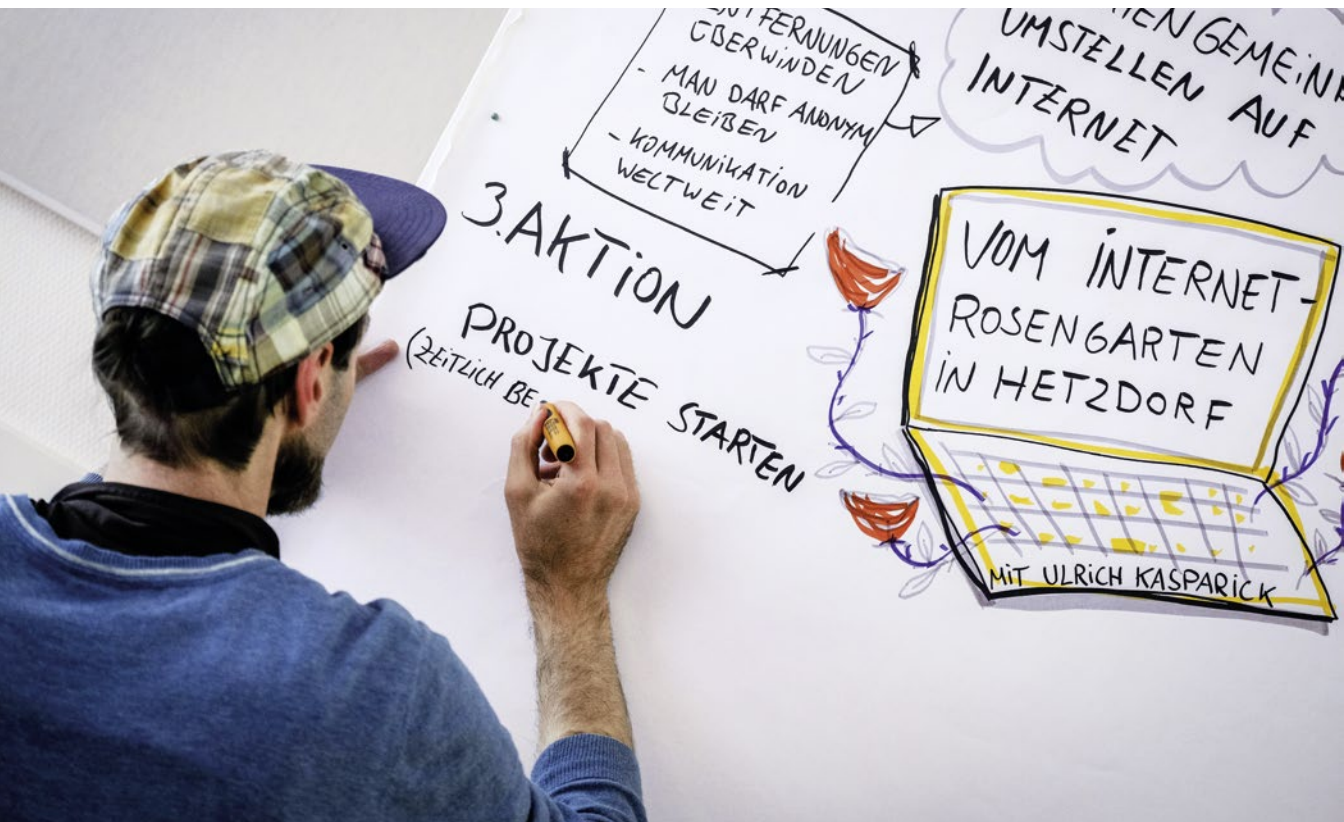 ENTFERNUNGEN
ÜBERWINDEN
- MAN DARF ANONYM
BLEIBEN
- KOMMUNIKATION
WELTWEIT
UMSTELLEN AUF
INTERNET
3. AKTION
PROJEKTE STARTEN
(ZEITLICH BE
VOM INTERNET-
ROSENGARTEN
IN HETZDORF
MIT ULRICH KASPARICK